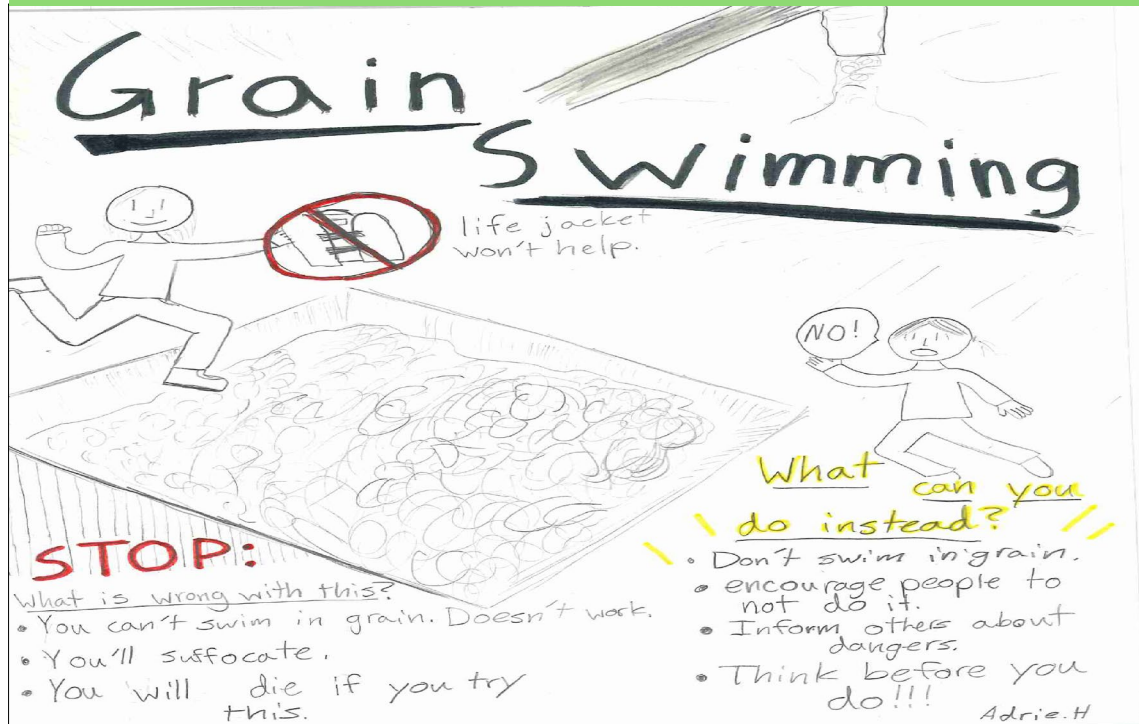 Grain
Swimming
life jacket
won't help.
NO!
STOP:
What is wrong with this?
• You can't swim in grain. Doesn't work.
• You'll suffocate.
• You will die if you try
this.
What can you
do instead?
• Don't swim in grain.
• encourage people to
not do it.
• Inform others about
dangers.
• Think before you
do!!!
Adrie.H